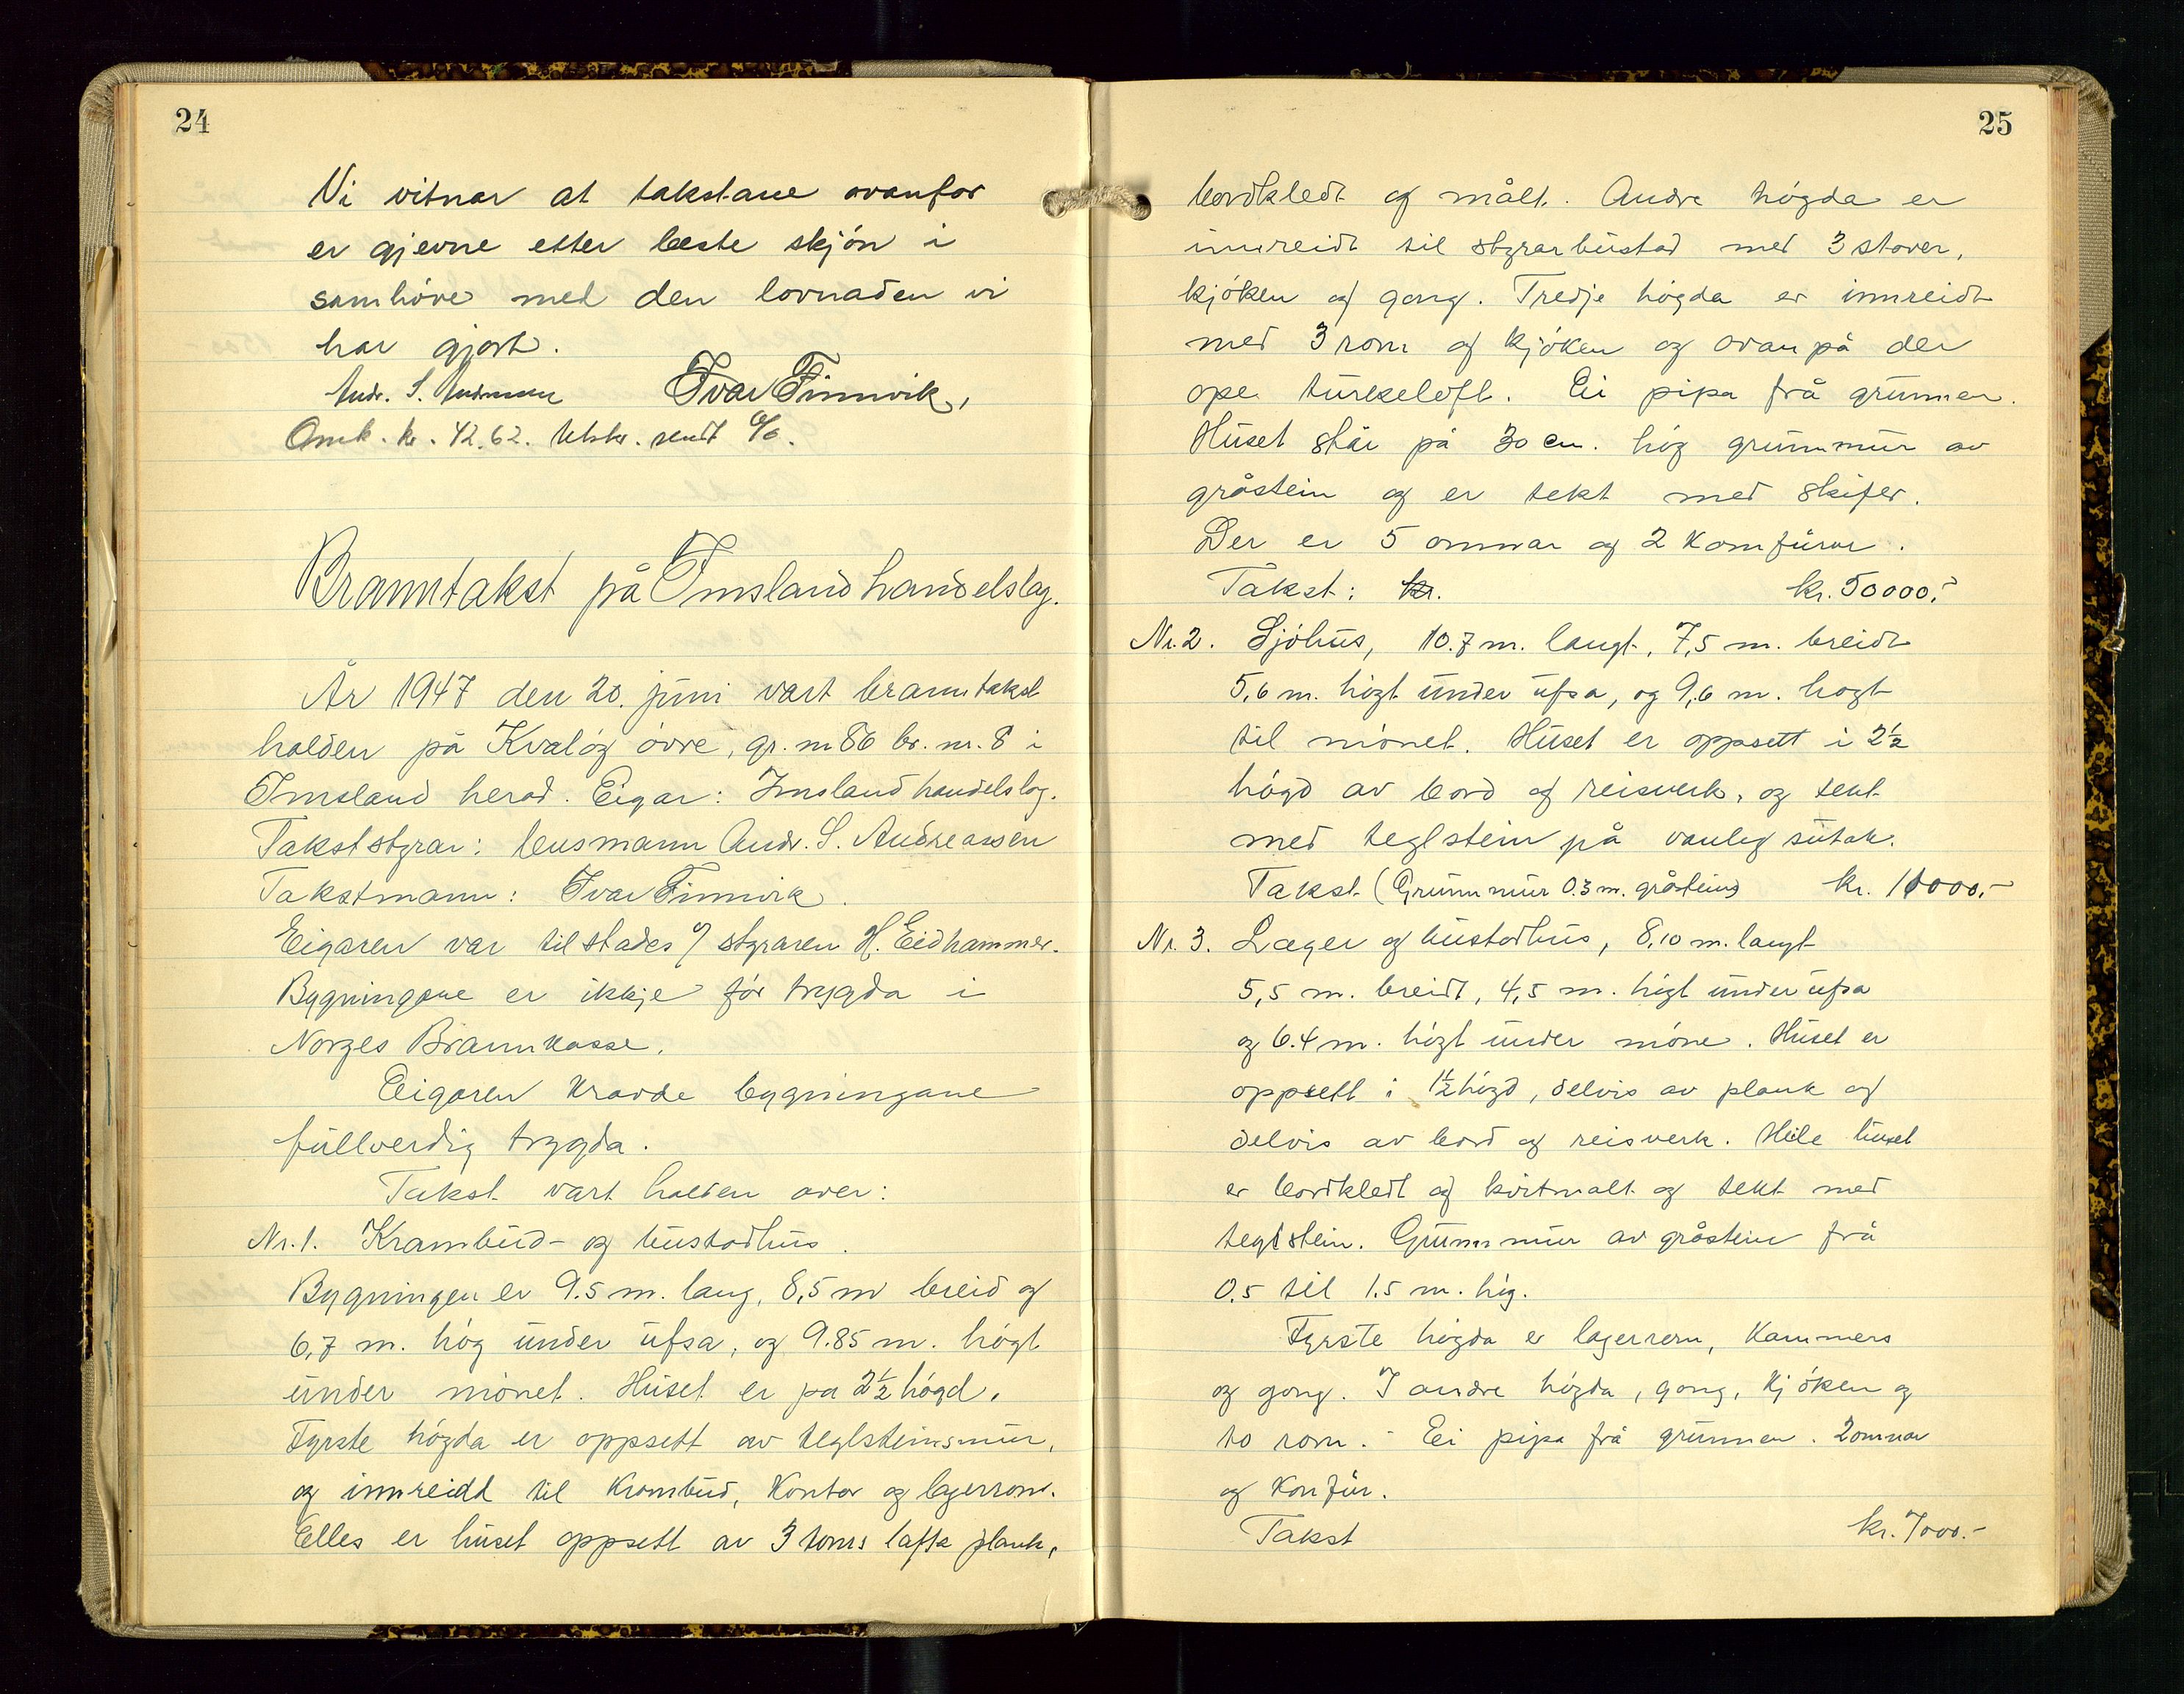 24
Vi vitnar at takstane ovanfor
er gjevne etter beste skjön i
samhöve med den lovnaden vi
har gjort.
Andr. S. Andreassen Ivar Finnvik,
Omk. kr. 42.62. Utskr. sendt %.
Branntakst på Imsland handelslag.
År 1947 den 20. juni vart branntakst
halden på Kvalög övre, gr. nr 86 br. nr. 8 i
Imsland herad. Eigar: Imsland handelslag.
Takststyrar: lensmann Andr. S. Andreassen
Takstmann: Ivar Finnvik.
Eigaren var tilstades v/ styraren H. Eidhammer.
Bygningane er ikkje för trygda i
Norges Brannkasse.
Eigaren kravde bygningane
fullverdig trygda.
Takst vart halden over:
Nr. 1. Krambud- og bustadhus.
Bygningen er 9.5 m. lang, 8,5 m breid og
6,7 m. hög under ufsa, og 9.85 m. högt
under mönet. Huset er på 2½ högd.
Fyrste högda er oppsett av teglsteinsmur,
og innreidd til krambud, kontor og lagerrom.
Elles er huset oppsett av 3 toms lafta plank,
25
bordkledt og målt. Andre högda er
innreidt til styrarbustad med 3 stover,
kjöken og gang. Tredje högda er innreidt
med 3 rom og kjöken og ovan på der
ope turkeloft. Ei pipa frå grunnen.
Huset står på 30 cm. hög grunnmur av
gråstein og er tekt med skifer.
Der er 5 omnar og 2 komfürar.
Takst: kr. kr. 50000.-
Nr. 2. Sjöhus, 10.7 m. langt, 7,5 m. breidt
5,6 m. högt under ufsa, og 9,6 m. hogt
til mönet. Huset er oppsett i 2½
högd av bord og reisverk, og tekt
med teglstein på vanleg sutak.
Takst (Grunnmur 0.3 m. gråstein) kr. 11000.-
Nr. 3. Lager og bustadhus, 8,10 m. langt
5,5 m. breidt, 4,5 m. högt under ufsa
og 6.4 m. högt under möne. Huset er
oppsett i 1½ högd, delvis av plank og
delvis av bord og reisverk. Heile huset
er bordkledt og kvitmalt og tekt med
teglstein. Grunnmur av gråstein frå
0.5 til 1.5 m. hög.
Fyrste högda er lagerrom, kammers
og gong. I andre högda, gong, kjöken og
to rom. - Ei pipa frå grunnen. 2 omnar
og konfür.
Takst kr. 7000.-